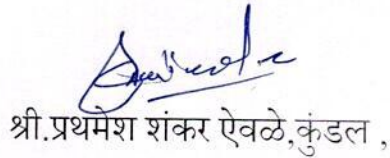 श्री.प्रथमेश शंकर ऐवळे,कुंडल ,